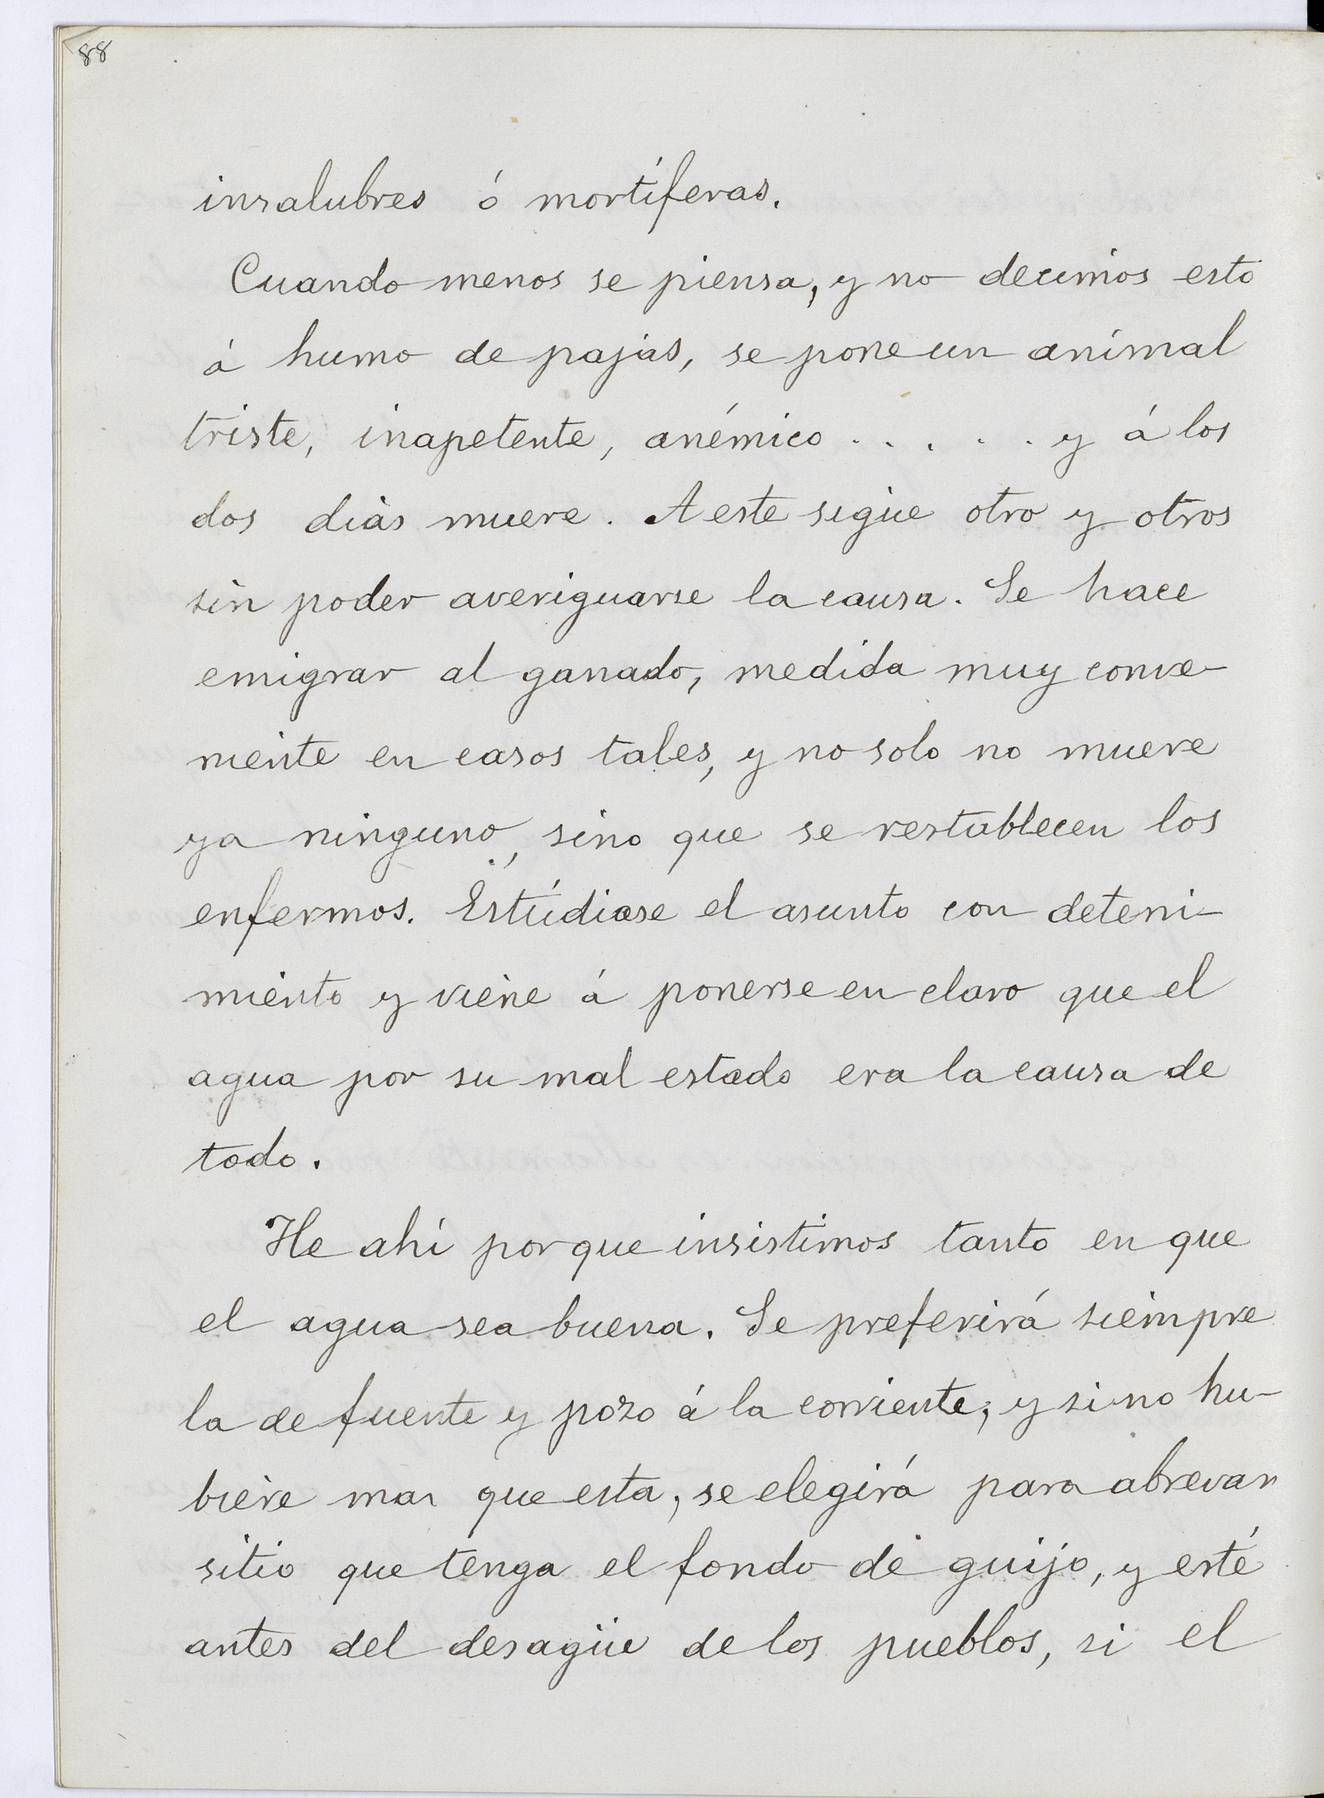 88
insalubres ó mortíferas.
Cuando menos se piensa, y no decimos esto
á humo de pajas, se pone un animal
triste, inapetente, anémico . . . . . y á los
dos dias muere. A este sigue otro y otros
sin poder averiguarse la causa. Se hace
emigrar al ganado, medida muy conve-
niente en casos tales, y no solo no muere
ya ninguno, sino que se restablecen los
enfermos. Estúdiase el asunto con deteni-
miento y viene á ponerse en claro que el
agua por su mal estado era la causa de
todo.
He ahi porque insistimos tanto en que
el agua sea buena. Se preferirá siempre
la de fuente y pozo á la corriente; y si no hu-
biere mas que esta, se elegirá para abrevar
sitio que tenga el fondo de guijo, y esté
antes del desagüe de los pueblos, si el